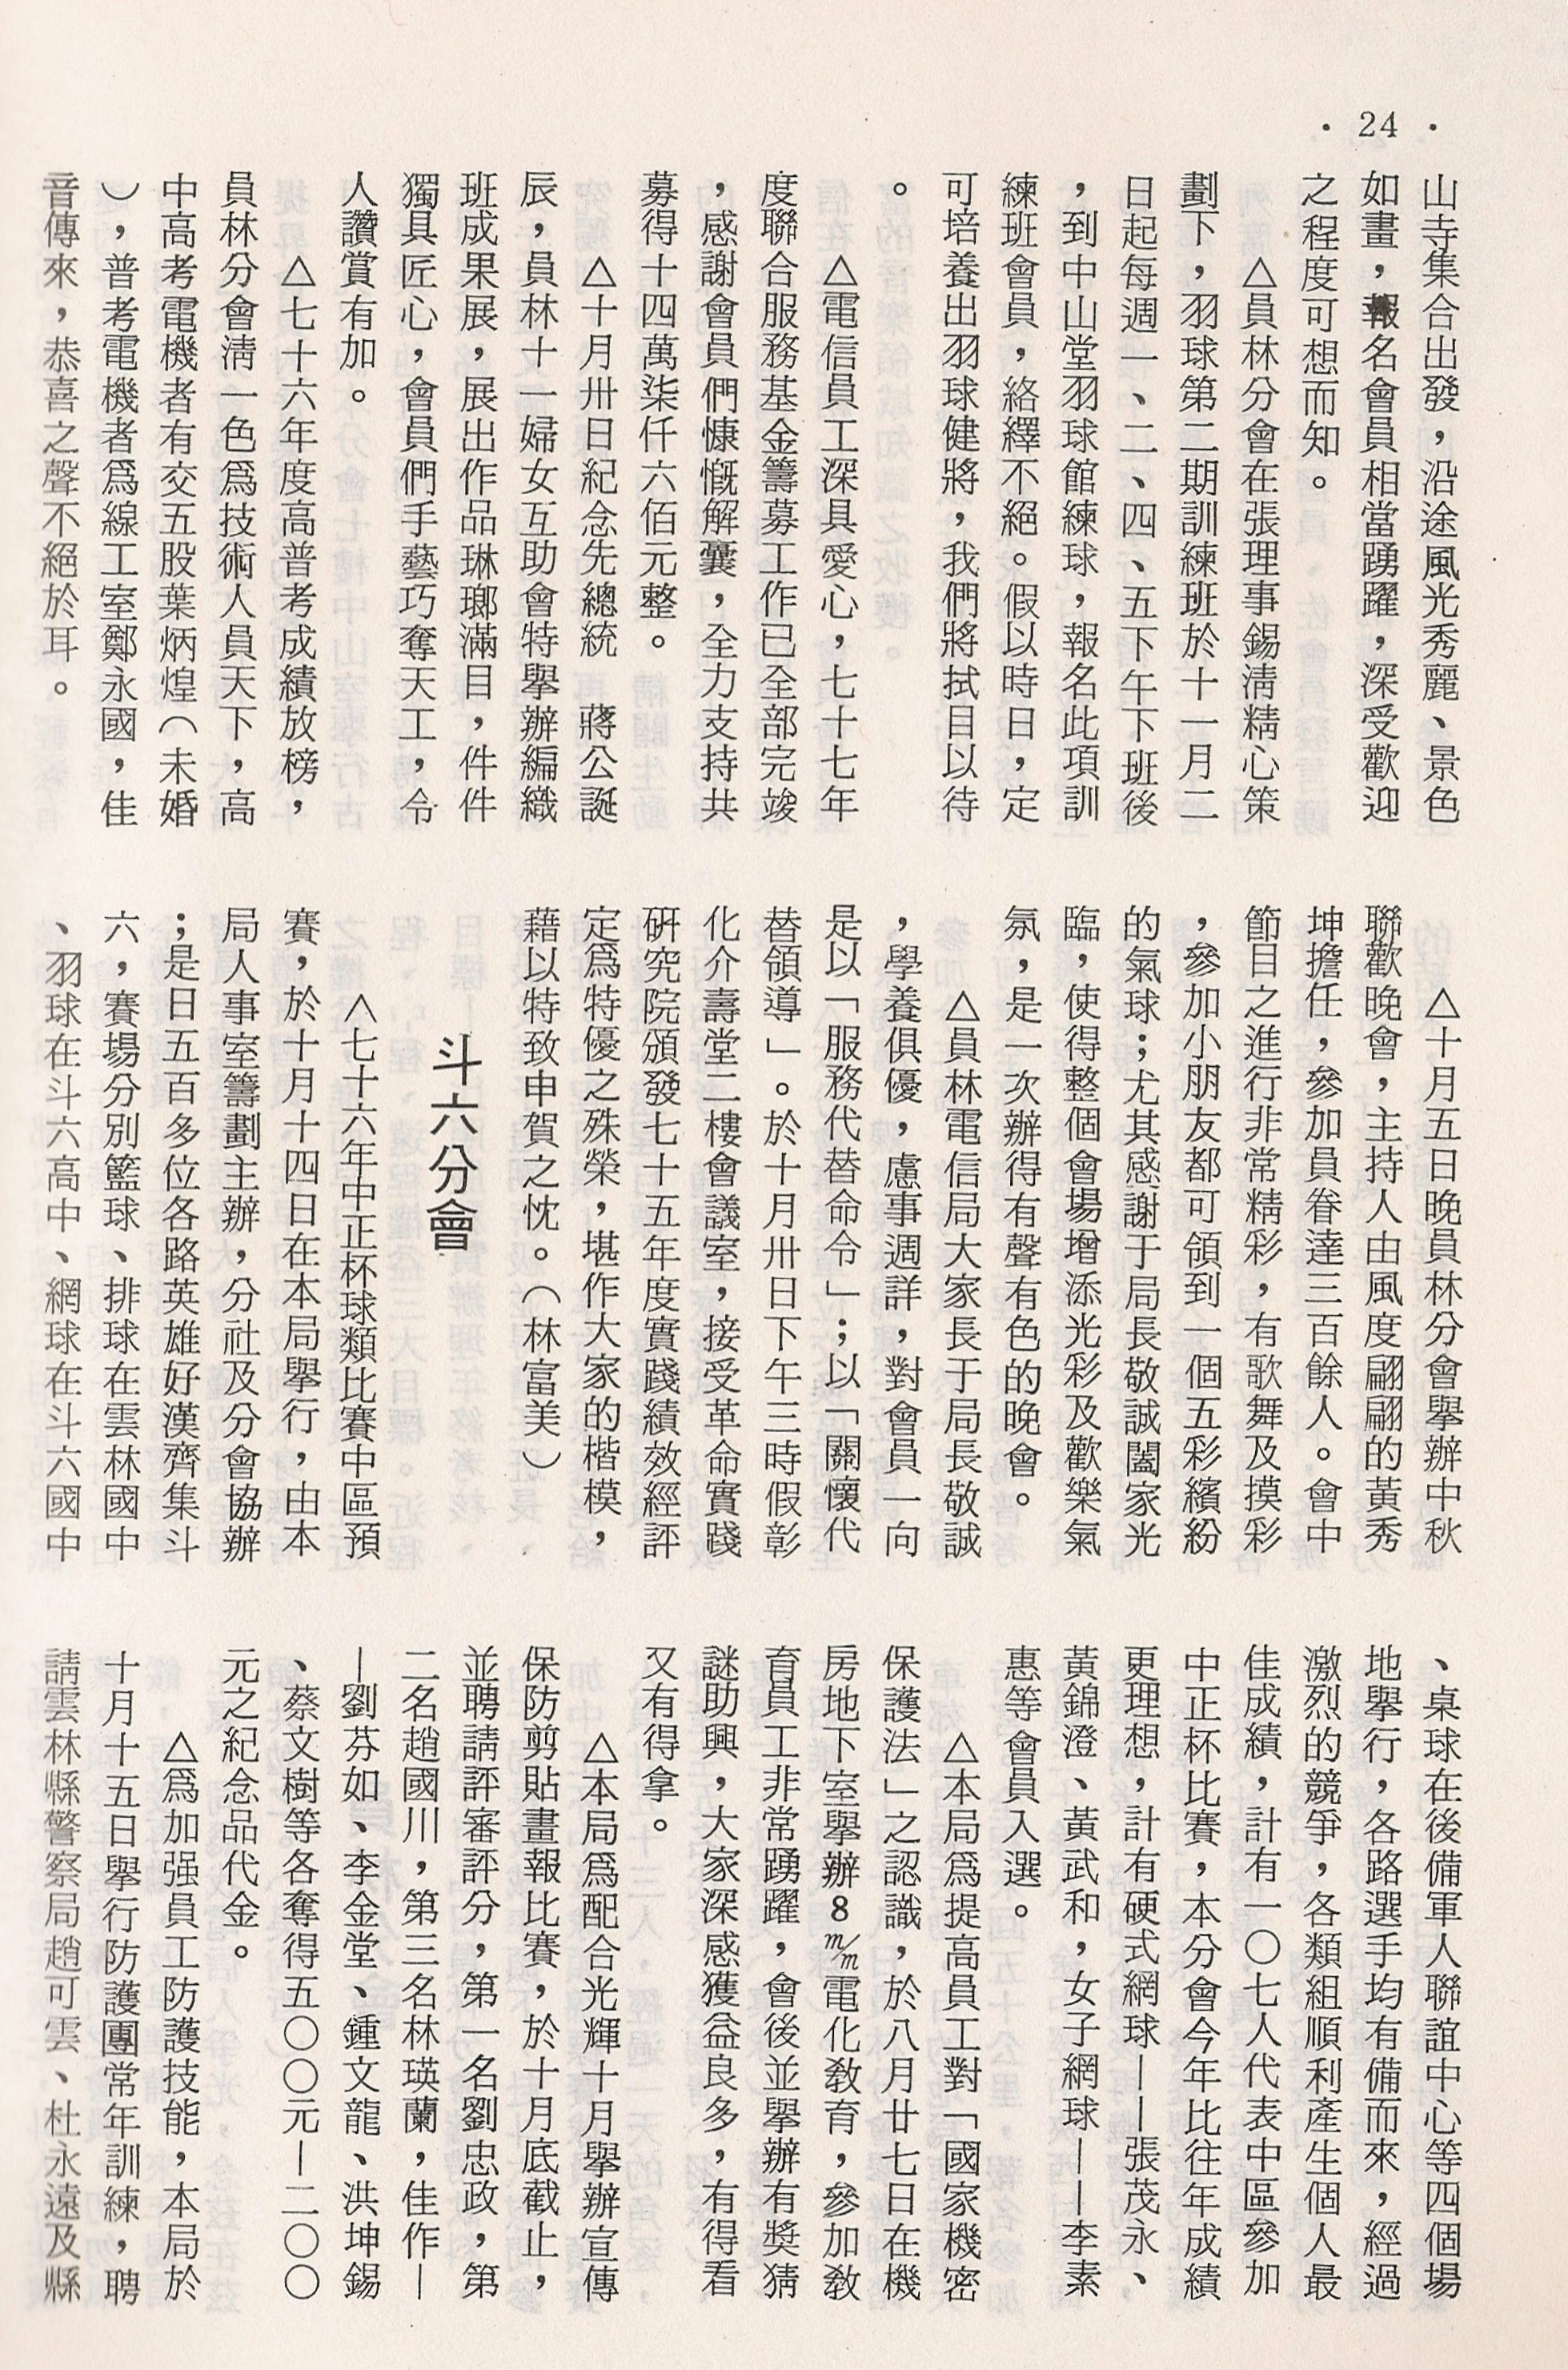 · 24 ·
山寺集合出發，沿途風光秀麗、景色
如畫，報名會員相當踴躍，深受歡迎
之程度可想而知。
△員林分會在張理事錫淸精心策
劃下，羽球第二期訓練班於十一月二
日起每週一、二、四、五下午下班後
，到中山堂羽球館練球，報名此項訓
練班會員，絡繹不絕。假以時日，定
可培養出羽球健將，我們將拭目以待
。
△電信員工深具愛心，七十七年
度聯合服務基金籌募工作已全部完竣
，感謝會員們慷慨解囊，全力支持共
募得十四萬柒仟六佰元整。
△十月卅日紀念先總統　蔣公誕
辰，員林十一婦女互助會特舉辦編織
班成果展，展出作品琳瑯滿目，件件
獨具匠心，會員們手藝巧奪天工，令
人讚賞有加。
△七十六年度高普考成績放榜，
員林分會淸一色爲技術人員天下，高
中高考電機者有交五股葉炳煌（未婚
），普考電機者爲線工室鄭永國，佳
音傳來，恭喜之聲不絕於耳。
△十月五日晚員林分會舉辦中秋
聯歡晚會，主持人由風度翩翩的黃秀
坤擔任，參加員眷達三百餘人。會中
節目之進行非常精彩，有歌舞及摸彩
，參加小朋友都可領到一個五彩繽紛
的氣球；尤其感謝于局長敬誠闔家光
臨，使得整個會場增添光彩及歡樂氣
氛，是一次辦得有聲有色的晚會。
△員林電信局大家長于局長敬誠
，學養俱優，慮事週詳，對會員一向
是以「服務代替命令」；以「關懷代
替領導」。於十月卅日下午三時假彰
化介壽堂二樓會議室，接受革命實踐
硏究院頒發七十五年度實踐績效經評
定爲特優之殊榮，堪作大家的楷模，
藉以特致申賀之忱。（林富美）
斗六分會
△七十六年中正杯球類比賽中區預
賽，於十月十四日在本局舉行，由本
局人事室籌劃主辦，分社及分會協辦
；是日五百多位各路英雄好漢齊集斗
六，賽場分別籃球、排球在雲林國中
、羽球在斗六高中、網球在斗六國中
、桌球在後備軍人聯誼中心等四個場
地舉行，各路選手均有備而來，經過
激烈的競爭，各類組順利產生個人最
佳成績，計有一〇七人代表中區參加
中正杯比賽，本分會今年比往年成績
更理想，計有硬式網球——張茂永、
黃錦澄、黃武和，女子網球——李素
惠等會員入選。
△本局爲提高員工對「國家機密
保護法」之認識，於八月廿七日在機
房地下室舉辦8㎜電化敎育，參加敎
育員工非常踴躍，會後並舉辦有獎猜
謎助興，大家深感獲益良多，有得看
又有得拿。
△本局爲配合光輝十月舉辦宣傳
保防剪貼畫報比賽，於十月底截止，
並聘請評審評分，第一名劉忠政，第
二名趙國川，第三名林瑛蘭，佳作—
—劉芬如、李金堂、鍾文龍、洪坤錫
、蔡文樹等各奪得五〇〇元—二〇〇
元之紀念品代金。
△爲加强員工防護技能，本局於
十月十五日舉行防護團常年訓練，聘
請雲林縣警察局趙可雲、杜永遠及縣